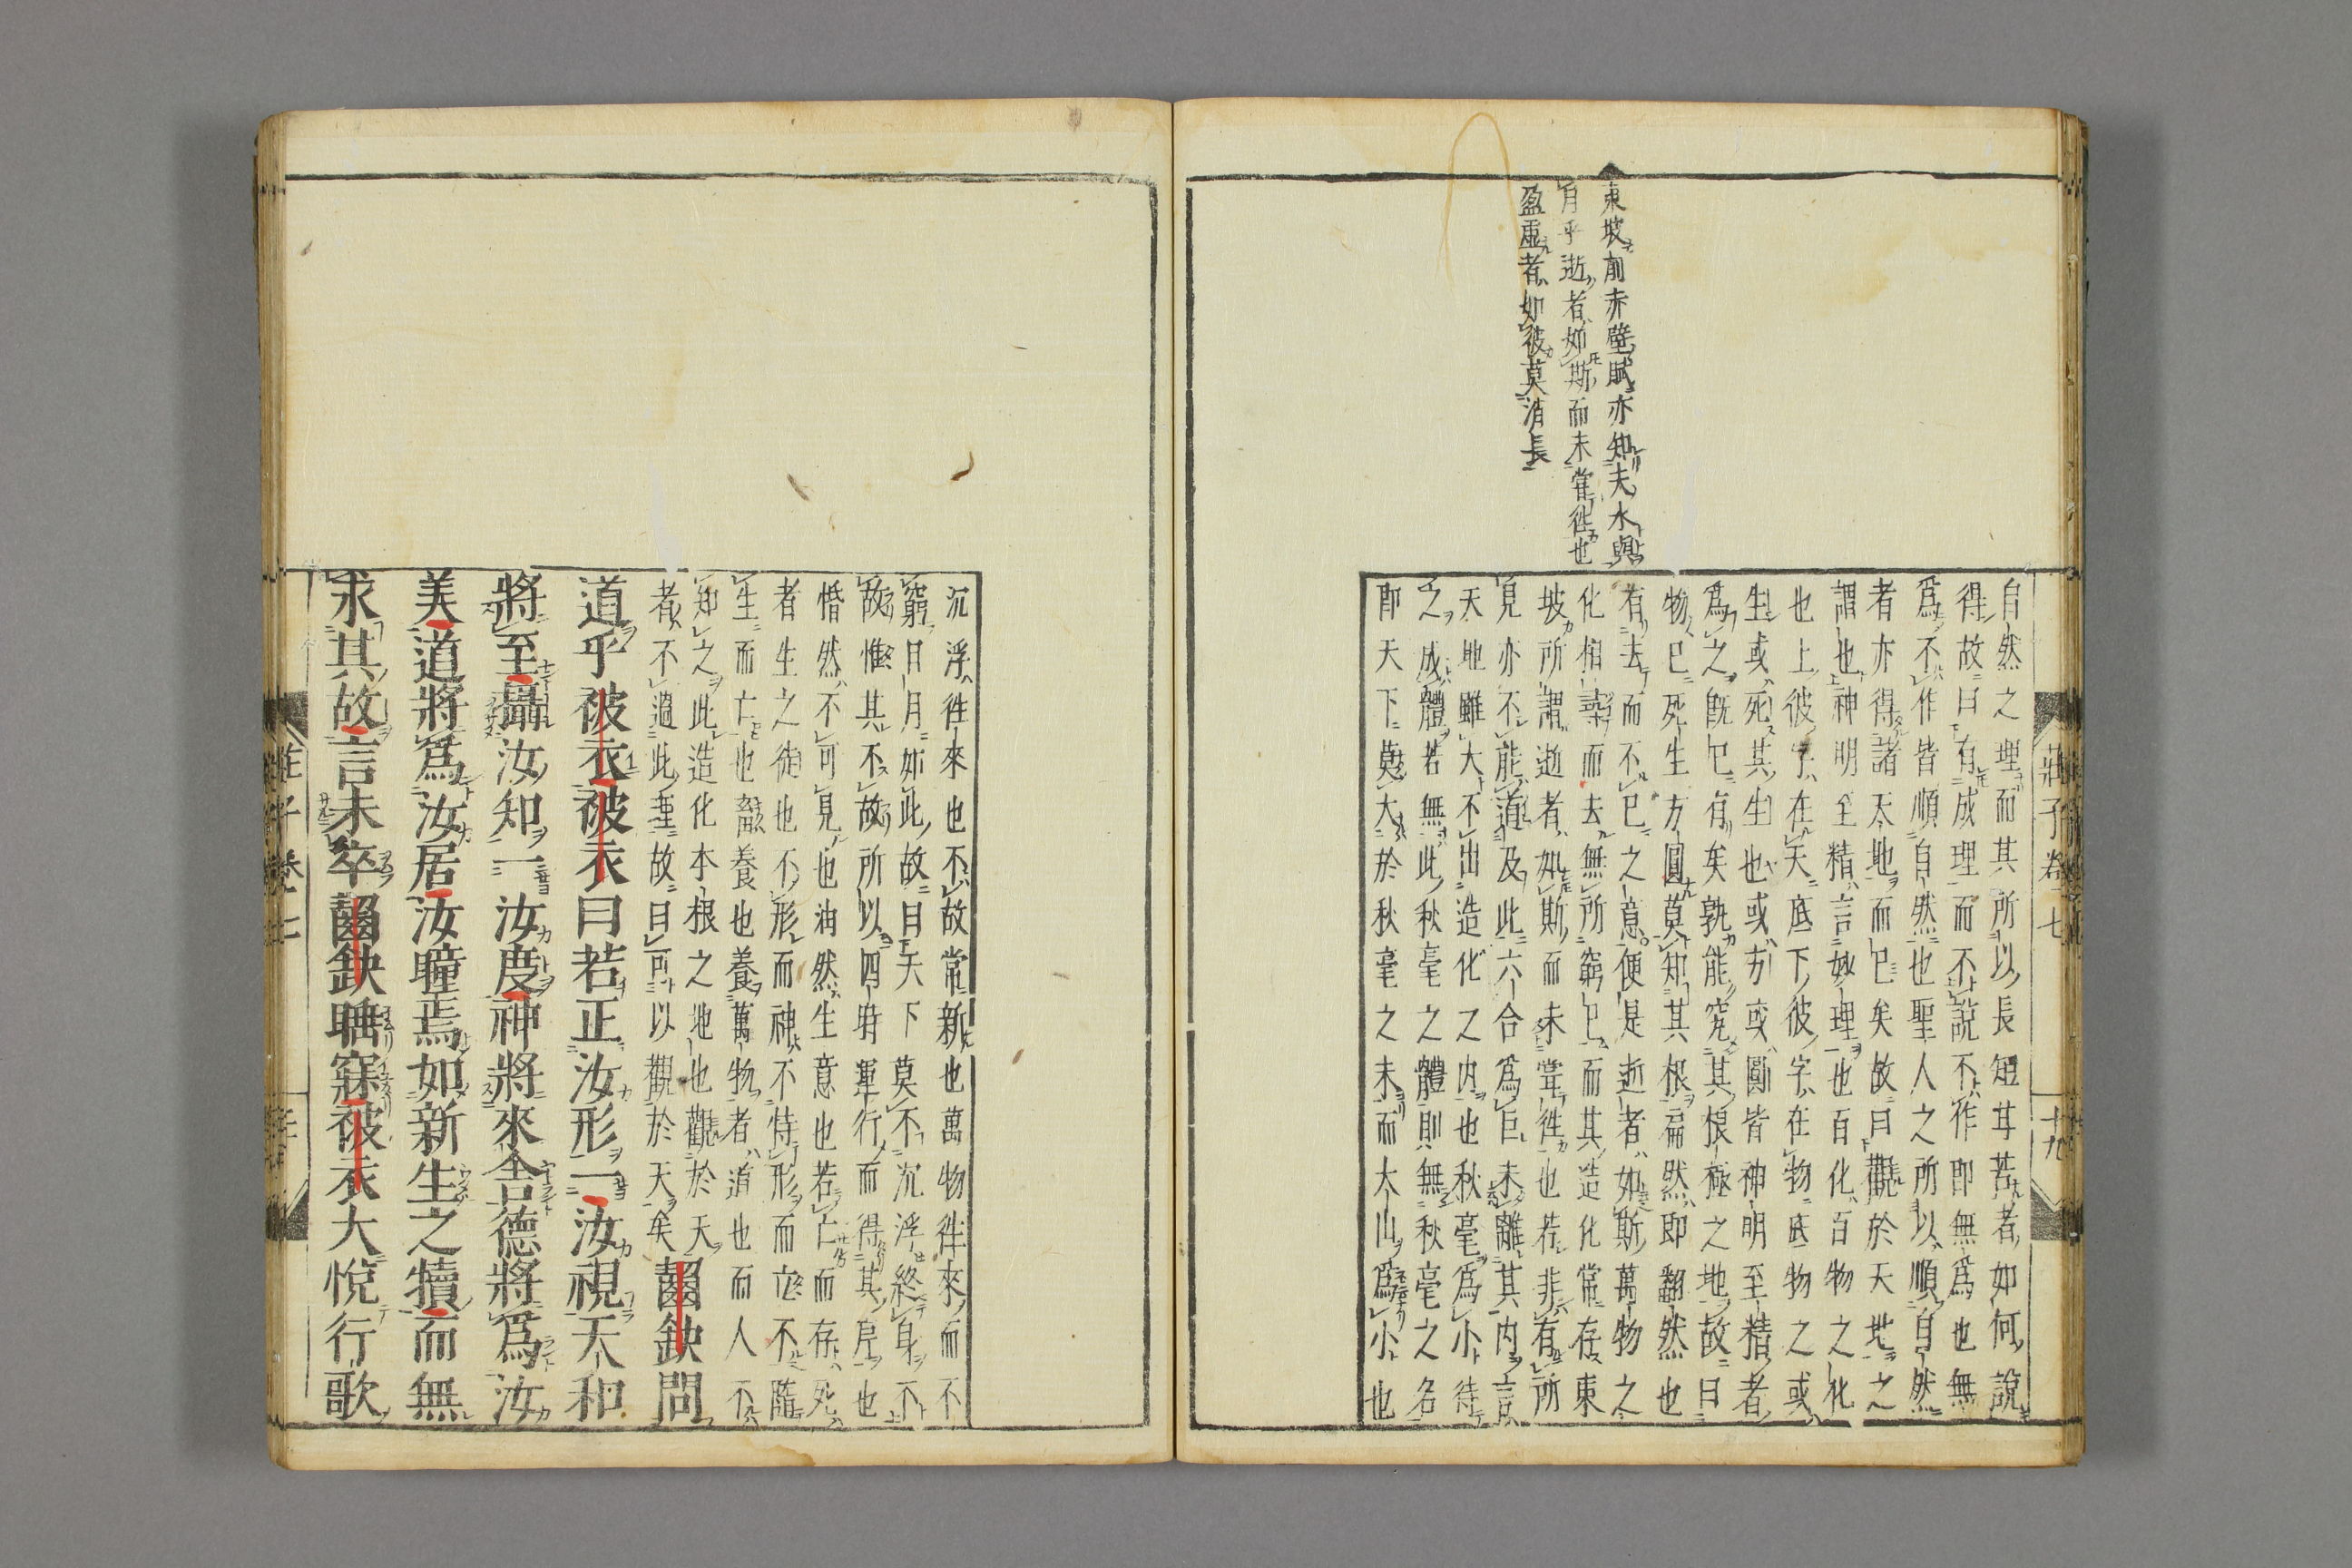 東坡前赤壁賦亦知夫水與
月乎逝者如斯而未嘗徃也
盈虚者如彼莫消長
莊子卷七
十九
自然之理而其所以長短耳苦者如何說
得故曰有成理而不說不作即無爲也無
爲不作皆順自然也聖人之所以順自然
者亦得諸天地而已矣故曰觀於天地之
謂也神明至精言妙理也百化百物之化
也上彼字在天底下彼字在物底物之或
生或死其生也或方或圓皆神明至精者
爲之旣已有矣孰能究其根極之地故曰
物已死生方圓莫知其根扁然即翻然也
有去而不已之意便是逝者如斯萬物之
化相尋而去無所窮已而其造化常存東
坡所謂逝者如斯而未嘗徃也若非有所
見亦不能道及此六合爲巨未離其内言
天地雖大不出造化之内也秋毫爲小待
之成體若無此秋毫之體則無秋毫之名
即天下莫大於秋毫之末而太山爲小也
沉浮徃來也不故常新也萬物徃來而不
窮日月如此故曰天下莫不沉浮終身不
故惟其不故所以四時運行而得其序也
惛然不可見也油然生意也若亡而存死
者生之徒也不形而神不恃形而立不隨
生而亡也畜養也養萬物者道也而人不
知之此造化本根之地也觀於天
者不過此理故曰可以觀於天矣齧缺問
道乎被衣被衣曰若正汝形一汝視天和
將至攝汝知一汝度神將來舍德將爲汝
美道將爲汝居汝瞳焉如新生之犢而無
求其故言未卒齧缺睡寐被衣大悅行歌
莊子卷七